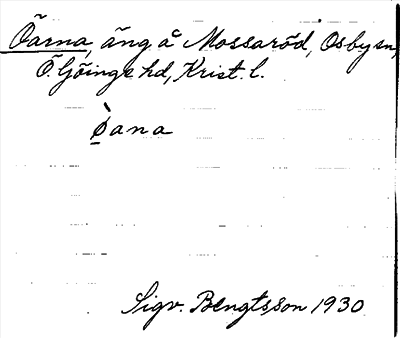 Öarna, äng å Mossaröd, Osby sn,
Ö. Göinge hd, Krist. l.
ø̀ana
Sigv. Bengtsson 1930